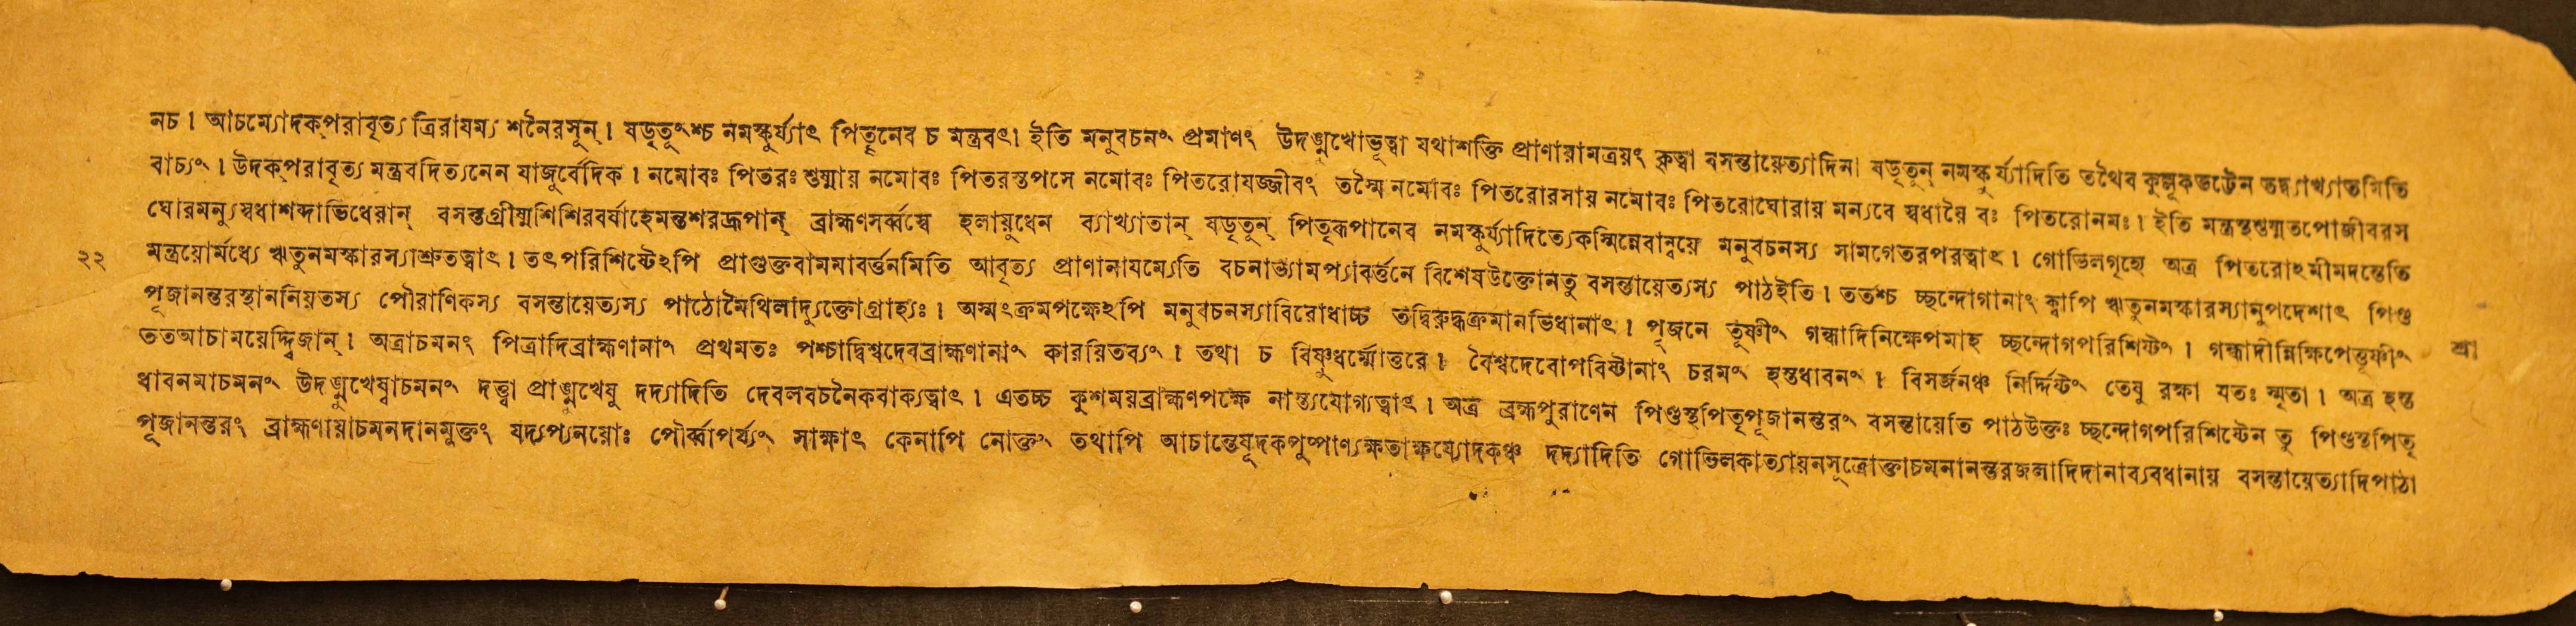 নচ। আচম্যোদক্পরাবৃত্য ত্রিরাযম্য শনৈরসূন্। ষড়ৃতূংশ্চ নমস্কুর্য্যাৎ পিতৄনেব চ মন্ত্রবৎ। ইতি মনুবচনং প্রমাণং উদঙ্মুখোভূত্বা যথাশক্তি প্রাণায়ামত্রয়ং কৃত্বা বসন্তায়েত্যাদিনা ষড়ৃতুন্ নমস্কুর্য্যাদিতি তথৈব কুল্লূকভট্টেন তদ্ব্যাখ্যাতমিতি
বাচ্যং। উদক্পরাবৃত্য মন্ত্রবদিত্যনেন যাজুর্বেদিক। নমোবঃ পিতরঃ শুষ্মায় নমোবঃ পিতরস্তপসে নমোবঃ পিতরোযজ্জীবং তস্মৈ নমোবঃ পিতরোরসায় নমোবঃ পিতরোঘোরায় মন্যবে স্বধায়ৈ বঃ পিতরোনমঃ। ইতি মন্ত্রস্থশুষ্মতপোজীবরস
ঘোরমন্যুস্বধাশব্দাভিধেয়ান্ বসন্তগ্রীষ্মশিশিরবর্ষাহেমন্তশরদ্রূপান্ ব্রাহ্মণসর্ব্বস্বে হলায়ুধেন ব্যাখ্যাতান্ ষড়ৃতুন্ পিতৃরূপানেব নমস্কুর্য্যাদিত্যেকস্মিন্নেবান্বয়ে মনুবচনস্য সামগেতরপরত্বাৎ। গোভিলগৃহ্যে অত্র পিতরোঽমীমদন্তেতি
২২ মন্ত্রয়োর্মধ্যে ঋতুনমস্কারস্যাশ্রুতত্বাৎ। তৎপরিশিষ্টেঽপি প্রাগুক্তবামমাবর্ত্তনমিতি আবৃত্য প্রাণানাযম্যেতি বচনাভ্যামপ্যাবর্ত্তনে বিশেষউক্তোনতু বসন্তায়েত্যস্য পাঠইতি। ততশ্চ চ্ছন্দোগানাং ক্বাপি ঋতুনমস্কারস্যানুপদেশাৎ পিণ্ড
পূজানন্তরস্থাননিয়তস্য পৌরাণিকস্য বসন্তায়েত্যস্য পাঠোমৈথিলাদ্যুক্তোগ্রাহ্যঃ। অস্মৎক্রমপক্ষেঽপি মনুবচনস্যাবিরোধাচ্চ তদ্বিরুদ্ধক্রমানভিধানাৎ। পূজনে তূষ্ণীং গন্ধাদিনিক্ষেপমাহ চ্ছন্দোগপরিশিষ্টং। গন্ধাদীন্নিক্ষিপেত্তূষ্ণীং শ্রা
ততআচাময়েদ্দ্বিজান্। অত্রাচমনং পিত্রাদিব্রাহ্মণানাং প্রথমতঃ পশ্চাদ্বিশ্বদেবব্রাহ্মণানাং কারয়িতব্যং। তথা চ বিষ্ণুধর্ম্মোত্তরে। বৈশ্বদেবোপবিষ্টানাং চরমং হস্তধাবনং। বিসর্জনঞ্চ নির্দ্দিষ্টং তেষু রক্ষা যতঃ স্মৃতা। অত্র হস্ত
ধাবনমাচমনং উদঙ্মুখেষ্বাচমনং দত্ত্বা প্রাঙ্মুখেষু দদ্যাদিতি দেবলবচনৈকবাক্যত্বাৎ। এতচ্চ কুশময়ব্রাহ্মণপক্ষে নাস্ত্যযোগ্যত্বাৎ। অত্র ব্রহ্মপুরাণেন পিণ্ডস্থপিতৃপূজানন্তরং বসন্তায়েতি পাঠউক্তঃ চ্ছন্দোগপরিশিষ্টেন তু পিণ্ডস্থপিতৃ
পূজানন্তরং ব্রাহ্মণায়াচমনদানমুক্তং যদ্যপ্যনয়োঃ পৌর্ব্বাপর্য্যং সাক্ষাৎ কেনাপি নোক্তং তথাপি আচান্তেষূদকপুষ্পাণ্যক্ষতাক্ষয্যোদকঞ্চ দদ্যাদিতি গোভিলকাত্যায়নসূত্রোক্তাচমনানন্তরজলাদিদানাব্যবধানায় বসন্তায়েত্যাদিপাঠা